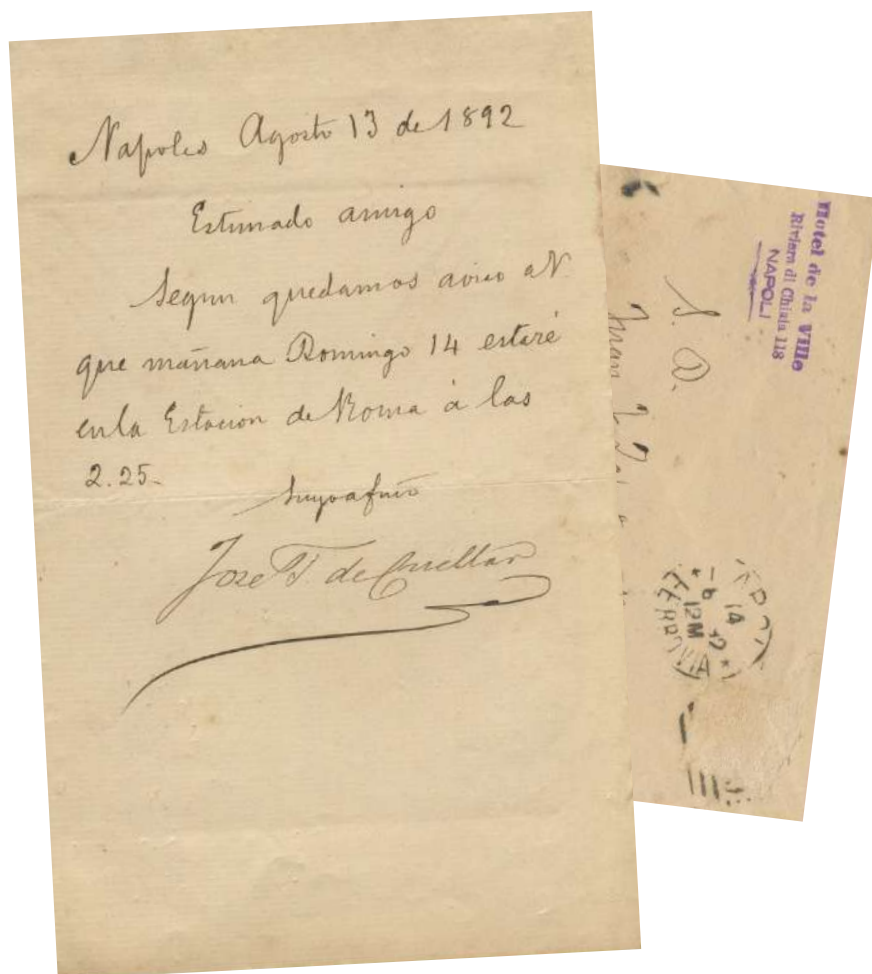 Napoles Agosto 13 de 1892
Estimado amigo
Segun quedamos aviso a V.
que mañana Domingo 14 estaré
en la Estacion de Roma á las
2.25-
Suyo afmo
José T. de Cuellar
Hotel de la Ville
Riviera di Chiaia 118
NAPOLI
S. D.
Juan
14
12M
FERROVIA